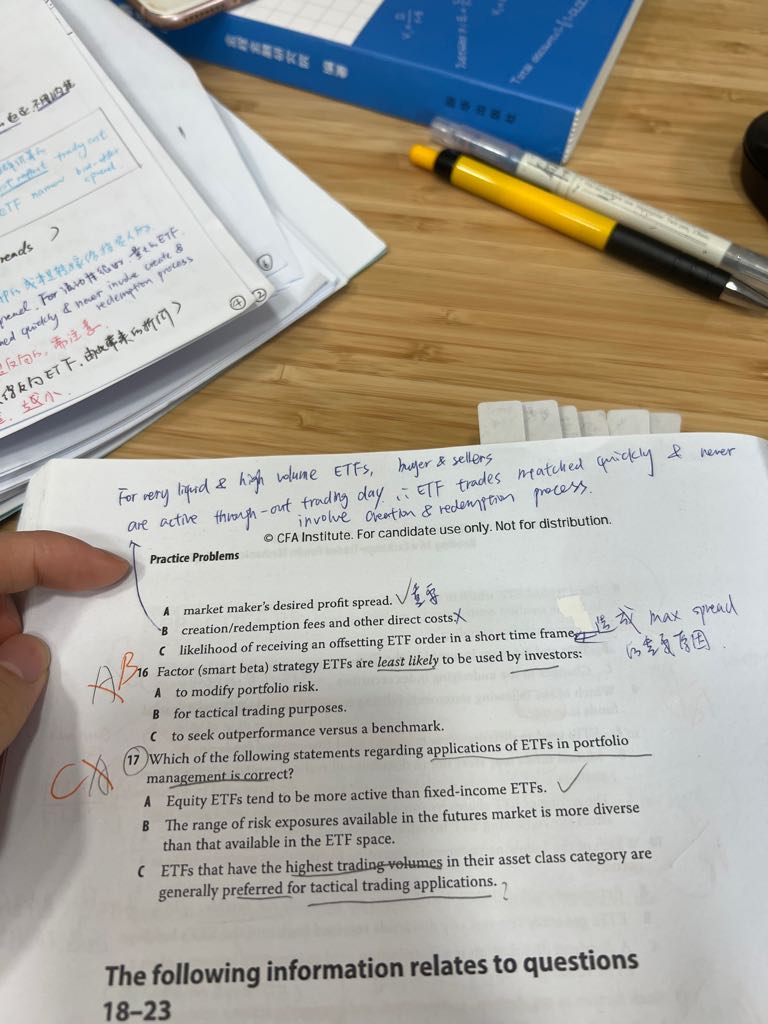 trady out
ETF narrow bid-offer
spread.
reads >
量大的 ETF.
quickly & never involve create &
redemption process
④ ②
For very liquid & high volume ETFs, buyer & sellers
are active through-out trading day ∴ ETF trades matched quickly & never
involve creation & redemption process.
© CFA Institute. For candidate use only. Not for distribution.
Practice Problems
A market maker's desired profit spread. ✓ 重要
B creation/redemption fees and other direct costs. x
C likelihood of receiving an offsetting ETF order in a short time frame. 造成 max spread
的重要原因.
AB
16 Factor (smart beta) strategy ETFs are least likely to be used by investors:
A to modify portfolio risk.
B for tactical trading purposes.
C to seek outperformance versus a benchmark.
CA
17 Which of the following statements regarding applications of ETFs in portfolio
management is correct?
A Equity ETFs tend to be more active than fixed-income ETFs. ✓
B The range of risk exposures available in the futures market is more diverse
than that available in the ETF space.
C ETFs that have the highest trading volumes in their asset class category are
generally preferred for tactical trading applications. ?
The following information relates to questions
18–23